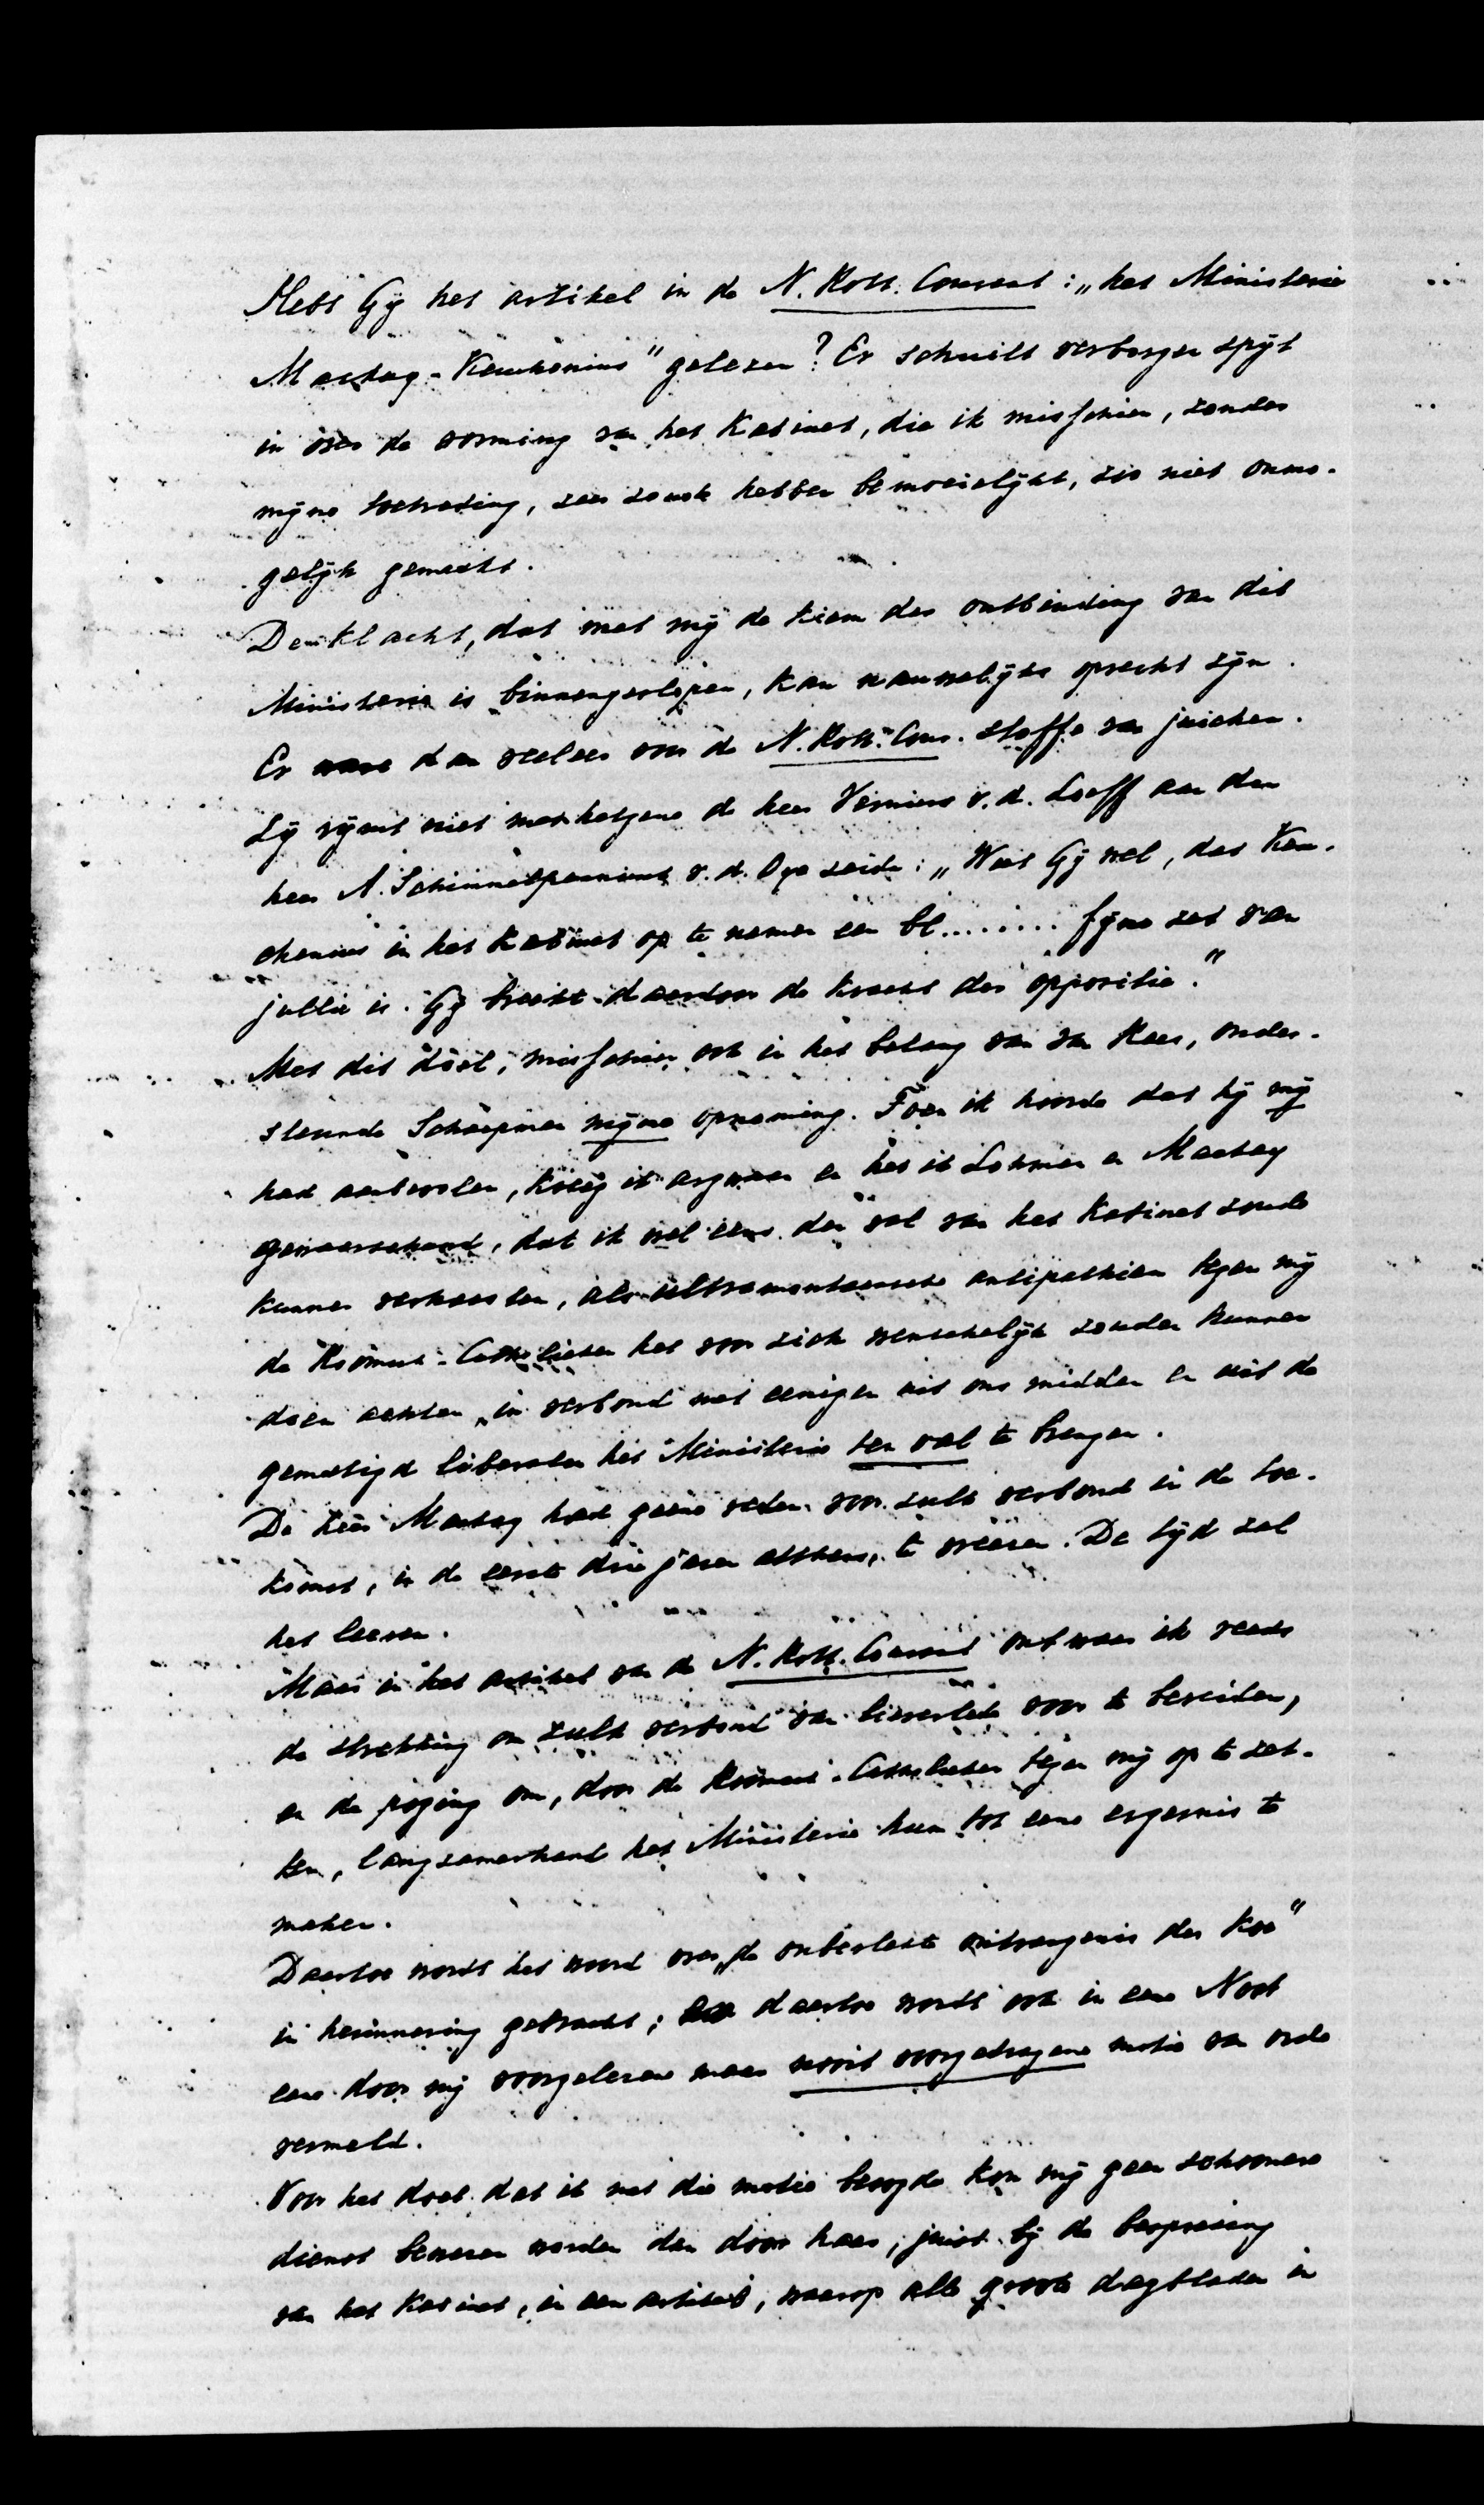 Hebt Gÿ het artikel in de N. Rott. Courant: „het Ministerie
Mackay-Keuchenius" gelezen? Er schuilt verborgen spÿt
in over de vorming van het Kabinet, die ik misschien, zonder
mÿne toetreding, zeer zoude hebben bemoeielÿkt, zoo niet onmo-
gelÿk gemaakt.
De klacht, dat met mÿ de kiem der ontbinding van dit
Ministerie is binnengeslopen, kan nauwelÿks oprecht zÿn.
Er ware dan veeleer voor de N. Rott. Cour. stoffe van juichen.
Zÿ rÿmt niet met hetgene de heer Verniers v. d. Loeff aan den
heer A. Schimmelpenninck v. d. Oye zeide: „Weet Gÿ wel, dat Keu-
chenius in het Kabinet op te nemen een bl........ fÿne zet van
jullie is. Gÿ breekt daardoor de kracht der oppositie."
Met dit doel, misschien ook in het belang van van Rees, onder-
steunde Schaepman mÿne opneming. Toen ik hoorde dat hÿ mÿ
had aanbevolen, kreeg ik argwaan en heb ik Lohman en Mackay
gewaarschuwd, dat ik wel eens den val van het Kabinet zoude
kunnen verhaasten, als ultramontaansche antipathien tegen mÿ
de Roomsch-Catholieken het voor zich wenschelÿk zouden kunnen
doen achten, in verbond met eenigen uit ons midden en uit de
gematigd liberalen het Ministerie ten val te brengen.
De heer Mackay had geene reden voor zulk verbond in de toe-
komst, in de eerste drie jaren althans, te vreezen. De tÿd zal
het leeren.
Maar in het artikel van de N. Rott. Courant ontwaar ik reeds
de strekking om zulk verbond van lieverlede voor te bereiden,
en de poging om, door de Roomsch-Catholieken tegen mÿ op te zet-
ten, langzamerhand het Ministerie hun tot eene ergernis te
maken.
Daartoe wordt het woord over „de onbevlekte ontvangenis der Koe"
in herinnering gebracht; daartoe wordt ook in eene Noot
eene door mÿ voorgelezene maar nooit voorgedragene motie van orde
vermeld.
Voor het doel dat ik met die motie beoogde kon mÿ geen schoonere
dienst bewezen worden dan door haar, juist bÿ de bespreking
van het Kabinet, in een artikel, waarop alle groote dagbladen in